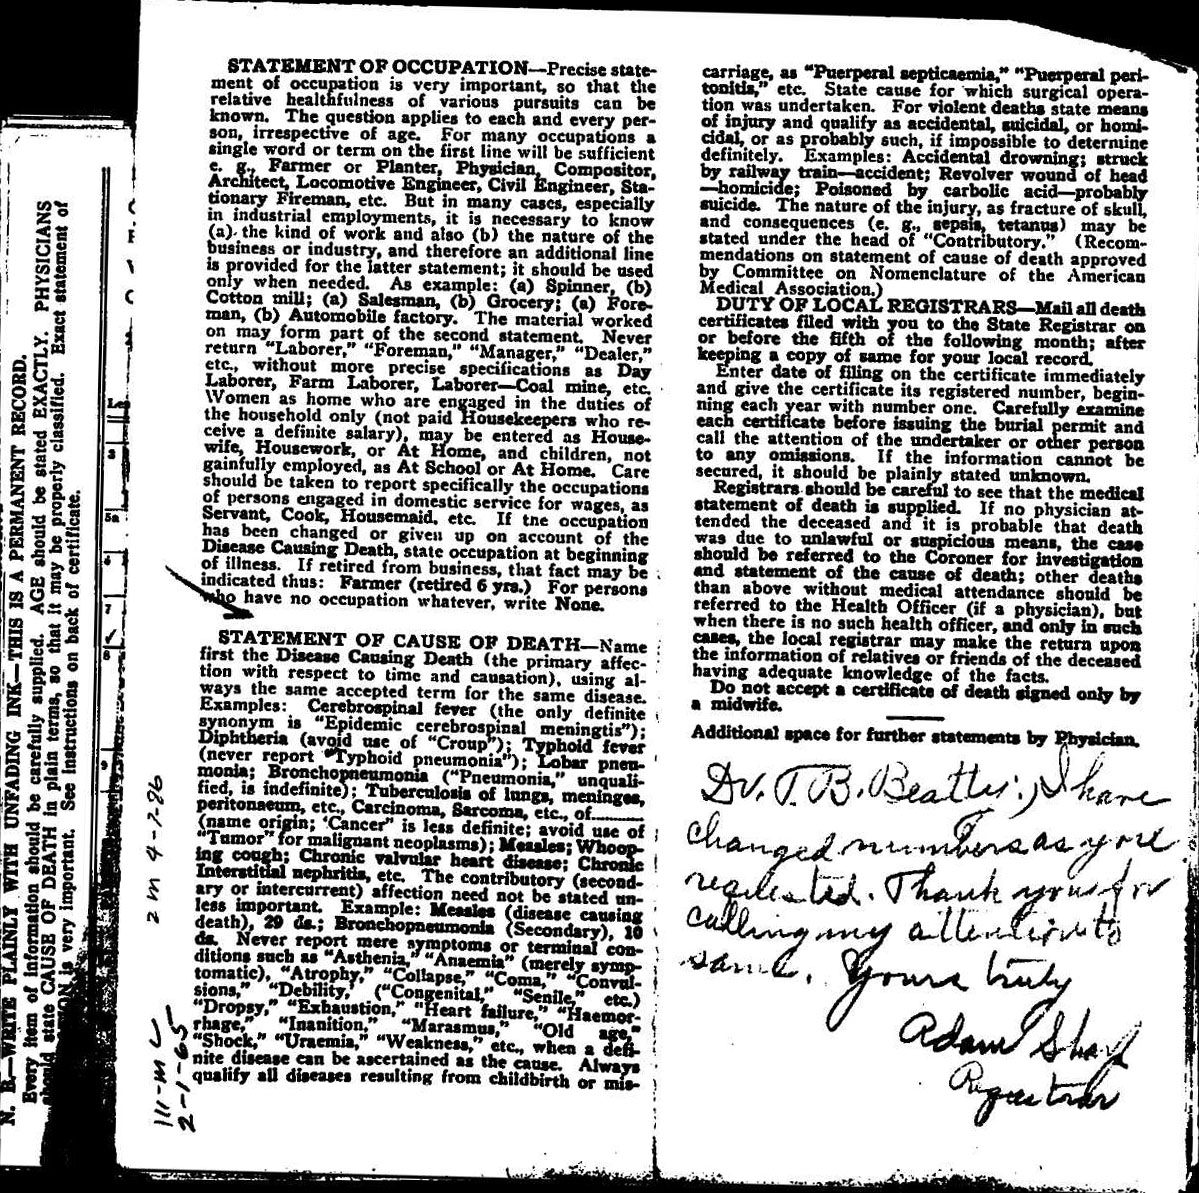 N. B.—WRITE PLAINLY WITH UNFADING INK—THIS IS A PERMANENT RECORD.
Every item of information should be carefully supplied. AGE should be stated EXACTLY. PHYSICIANS
should state CAUSE OF DEATH in plain terms, so that it may be properly classified. Exact statement of
is very important. See instructions on back of certificate.
3
5a
6
7
8
9
STATEMENT OF OCCUPATION—Precise state-
ment of occupation is very important, so that the
relative healthfulness of various pursuits can be
known. The question applies to each and every per-
son, irrespective of age. For many occupations a
single word or term on the first line will be sufficient
e. g., Farmer or Planter, Physician, Compositor,
Architect, Locomotive Engineer, Civil Engineer, Sta-
tionary Fireman, etc. But in many cases, especially
in industrial employments, it is necessary to know
(a) the kind of work and also (b) the nature of the
business or industry, and therefore an additional line
is provided for the latter statement; it should be used
only when needed. As example: (a) Spinner, (b)
Cotton mill; (a) Salesman, (b) Grocery; (a) Fore-
man, (b) Automobile factory. The material worked
on may form part of the second statement. Never
return "Laborer," "Foreman," "Manager," "Dealer,"
etc., without more precise specifications as Day
Laborer, Farm Laborer, Laborer—Coal mine, etc.
Women as home who are engaged in the duties of
the household only (not paid Housekeepers who re-
ceive a definite salary), may be entered as House-
wife, Housework, or At Home, and children, not
gainfully employed, as At School or At Home. Care
should be taken to report specifically the occupations
of persons engaged in domestic service for wages, as
Servant, Cook, Housemaid, etc. If the occupation
has been changed or given up on account of the
Disease Causing Death, state occupation at beginning
of illness. If retired from business, that fact may be
indicated thus: Farmer (retired 6 yrs.) For persons
who have no occupation whatever, write None.
STATEMENT OF CAUSE OF DEATH—Name
first the Disease Causing Death (the primary affec-
tion with respect to time and causation), using al-
ways the same accepted term for the same disease.
Examples: Cerebrospinal fever (the only definite
synonym is "Epidemic cerebrospinal meningtis");
Diphtheria (avoid use of "Croup"); Typhoid fever
(never report "Typhoid pneumonia"); Lobar pneu-
monia; Bronchopneumonia ("Pneumonia," unquali-
fied, is indefinite); Tuberculosis of lungs, meninges,
peritonaeum, etc., Carcinoma, Sarcoma, etc., of........
(name origin; 'Cancer" is less definite; avoid use of
"Tumor" for malignant neoplasms); Measles; Whoop-
ing cough; Chronic valvular heart disease; Chronic
Interstitial nephritis, etc. The contributory (second-
ary or intercurrent) affection need not be stated un-
less important. Example: Measles (disease causing
death), 29 ds.; Bronchopneumonia (Secondary), 10
ds. Never report mere symptoms or terminal con-
ditions such as "Asthenia," "Anaemia" (merely symp-
tomatic), "Atrophy," "Collapse," "Coma," "Convul-
sions," "Debility," ("Congenital," "Senile," etc.)
"Dropsy," "Exhaustion," "Heart failure," "Haemor-
rhage," "Inanition," "Marasmus," "Old age,"
"Shock," "Uraemia," "Weakness," etc., when a defi-
nite disease can be ascertained as the cause. Always
qualify all diseases resulting from childbirth or mis-
2 M 4-7-26
2-1-65
carriage, as "Puerperal septicaemia," "Puerperal peri-
tonitis," etc. State cause for which surgical opera-
tion was undertaken. For violent deaths state means
of injury and qualify as accidental, suicidal, or homi-
cidal, or as probably such, if impossible to determine
definitely. Examples: Accidental drowning; struck
by railway train—accident; Revolver wound of head
—homicide; Poisoned by carbolic acid—probably
suicide. The nature of the injury, as fracture of skull,
and consequences (e. g., sepsis, tetanus) may be
stated under the head of "Contributory." (Recom-
mendations on statement of cause of death approved
by Committee on Nomenclature of the American
Medical Association.)
DUTY OF LOCAL REGISTRARS—Mail all death
certificates filed with you to the State Registrar on
or before the fifth of the following month; after
keeping a copy of same for your local record.
Enter date of filing on the certificate immediately
and give the certificate its registered number, begin-
ning each year with number one. Carefully examine
each certificate before issuing the burial permit and
call the attention of the undertaker or other person
to any omissions. If the information cannot be
secured, it should be plainly stated unknown.
Registrars should be careful to see that the medical
statement of death is supplied. If no physician at-
tended the deceased and it is probable that death
was due to unlawful or suspicious means, the case
should be referred to the Coroner for investigation
and statement of the cause of death; other deaths
than above without medical attendance should be
referred to the Health Officer (if a physician), but
when there is no such health officer, and only in such
cases, the local registrar may make the return upon
the information of relatives or friends of the deceased
having adequate knowledge of the facts.
Do not accept a certificate of death signed only by
a midwife.
Additional space for further statements by Physician.
Dr. T. B. Beatty; I have
changed numbers as you
requested. Thank you for
calling my attention to
same. Yours truly
Adam Sharp
Registrar